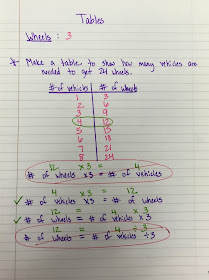 Tables
Wheels : 3
* Make a table to show how many vehicles are
needed to get 24 wheels.
# of vehicles # of wheels
1 3
2 6
3 9
4 12
5 15
6 18
7 21
8 24
12 x3 = 4
# of wheels x3 = # of vehicles
4 x 3 = 12
✓ # of vehicles x3 = # of wheels
12 = 4 x 3
✓ # of wheels = # of vehicles x3
12 = 4 ÷ 3
# of wheels = # of vehicles ÷3